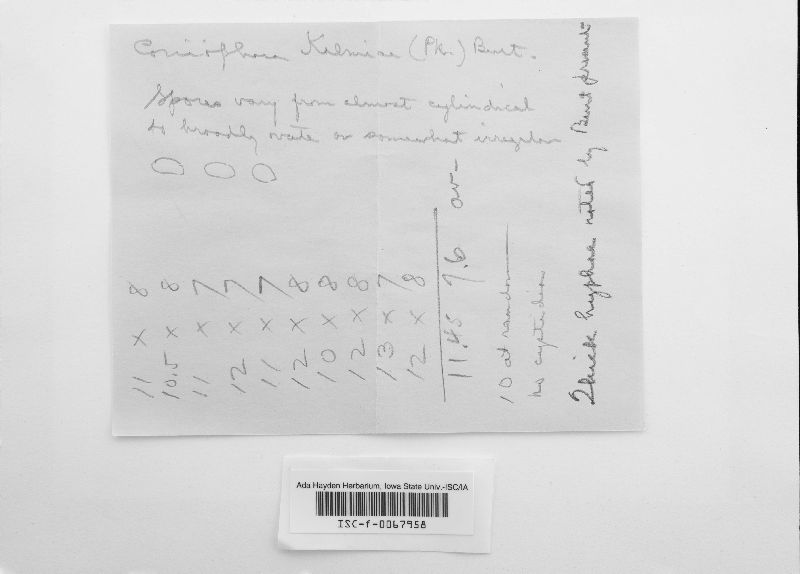 Coniophora Kalmiae (Pk.) Burt.
Spores vary from almost cylindrical
to broadly ovate or somewhat irregular
11 x 8
10.5 x 8
11 x 7
12 x 7
11 x 7
12 x 8
10 x 8
12 x 8
13 x 7
12 x 8
11.45 7.6 av-
10 at random
no cystidia
Thick hyphae noted by Burt present
Ada Hayden Herbarium, Iowa State Univ.-ISC/IA
ISC-f-0067958